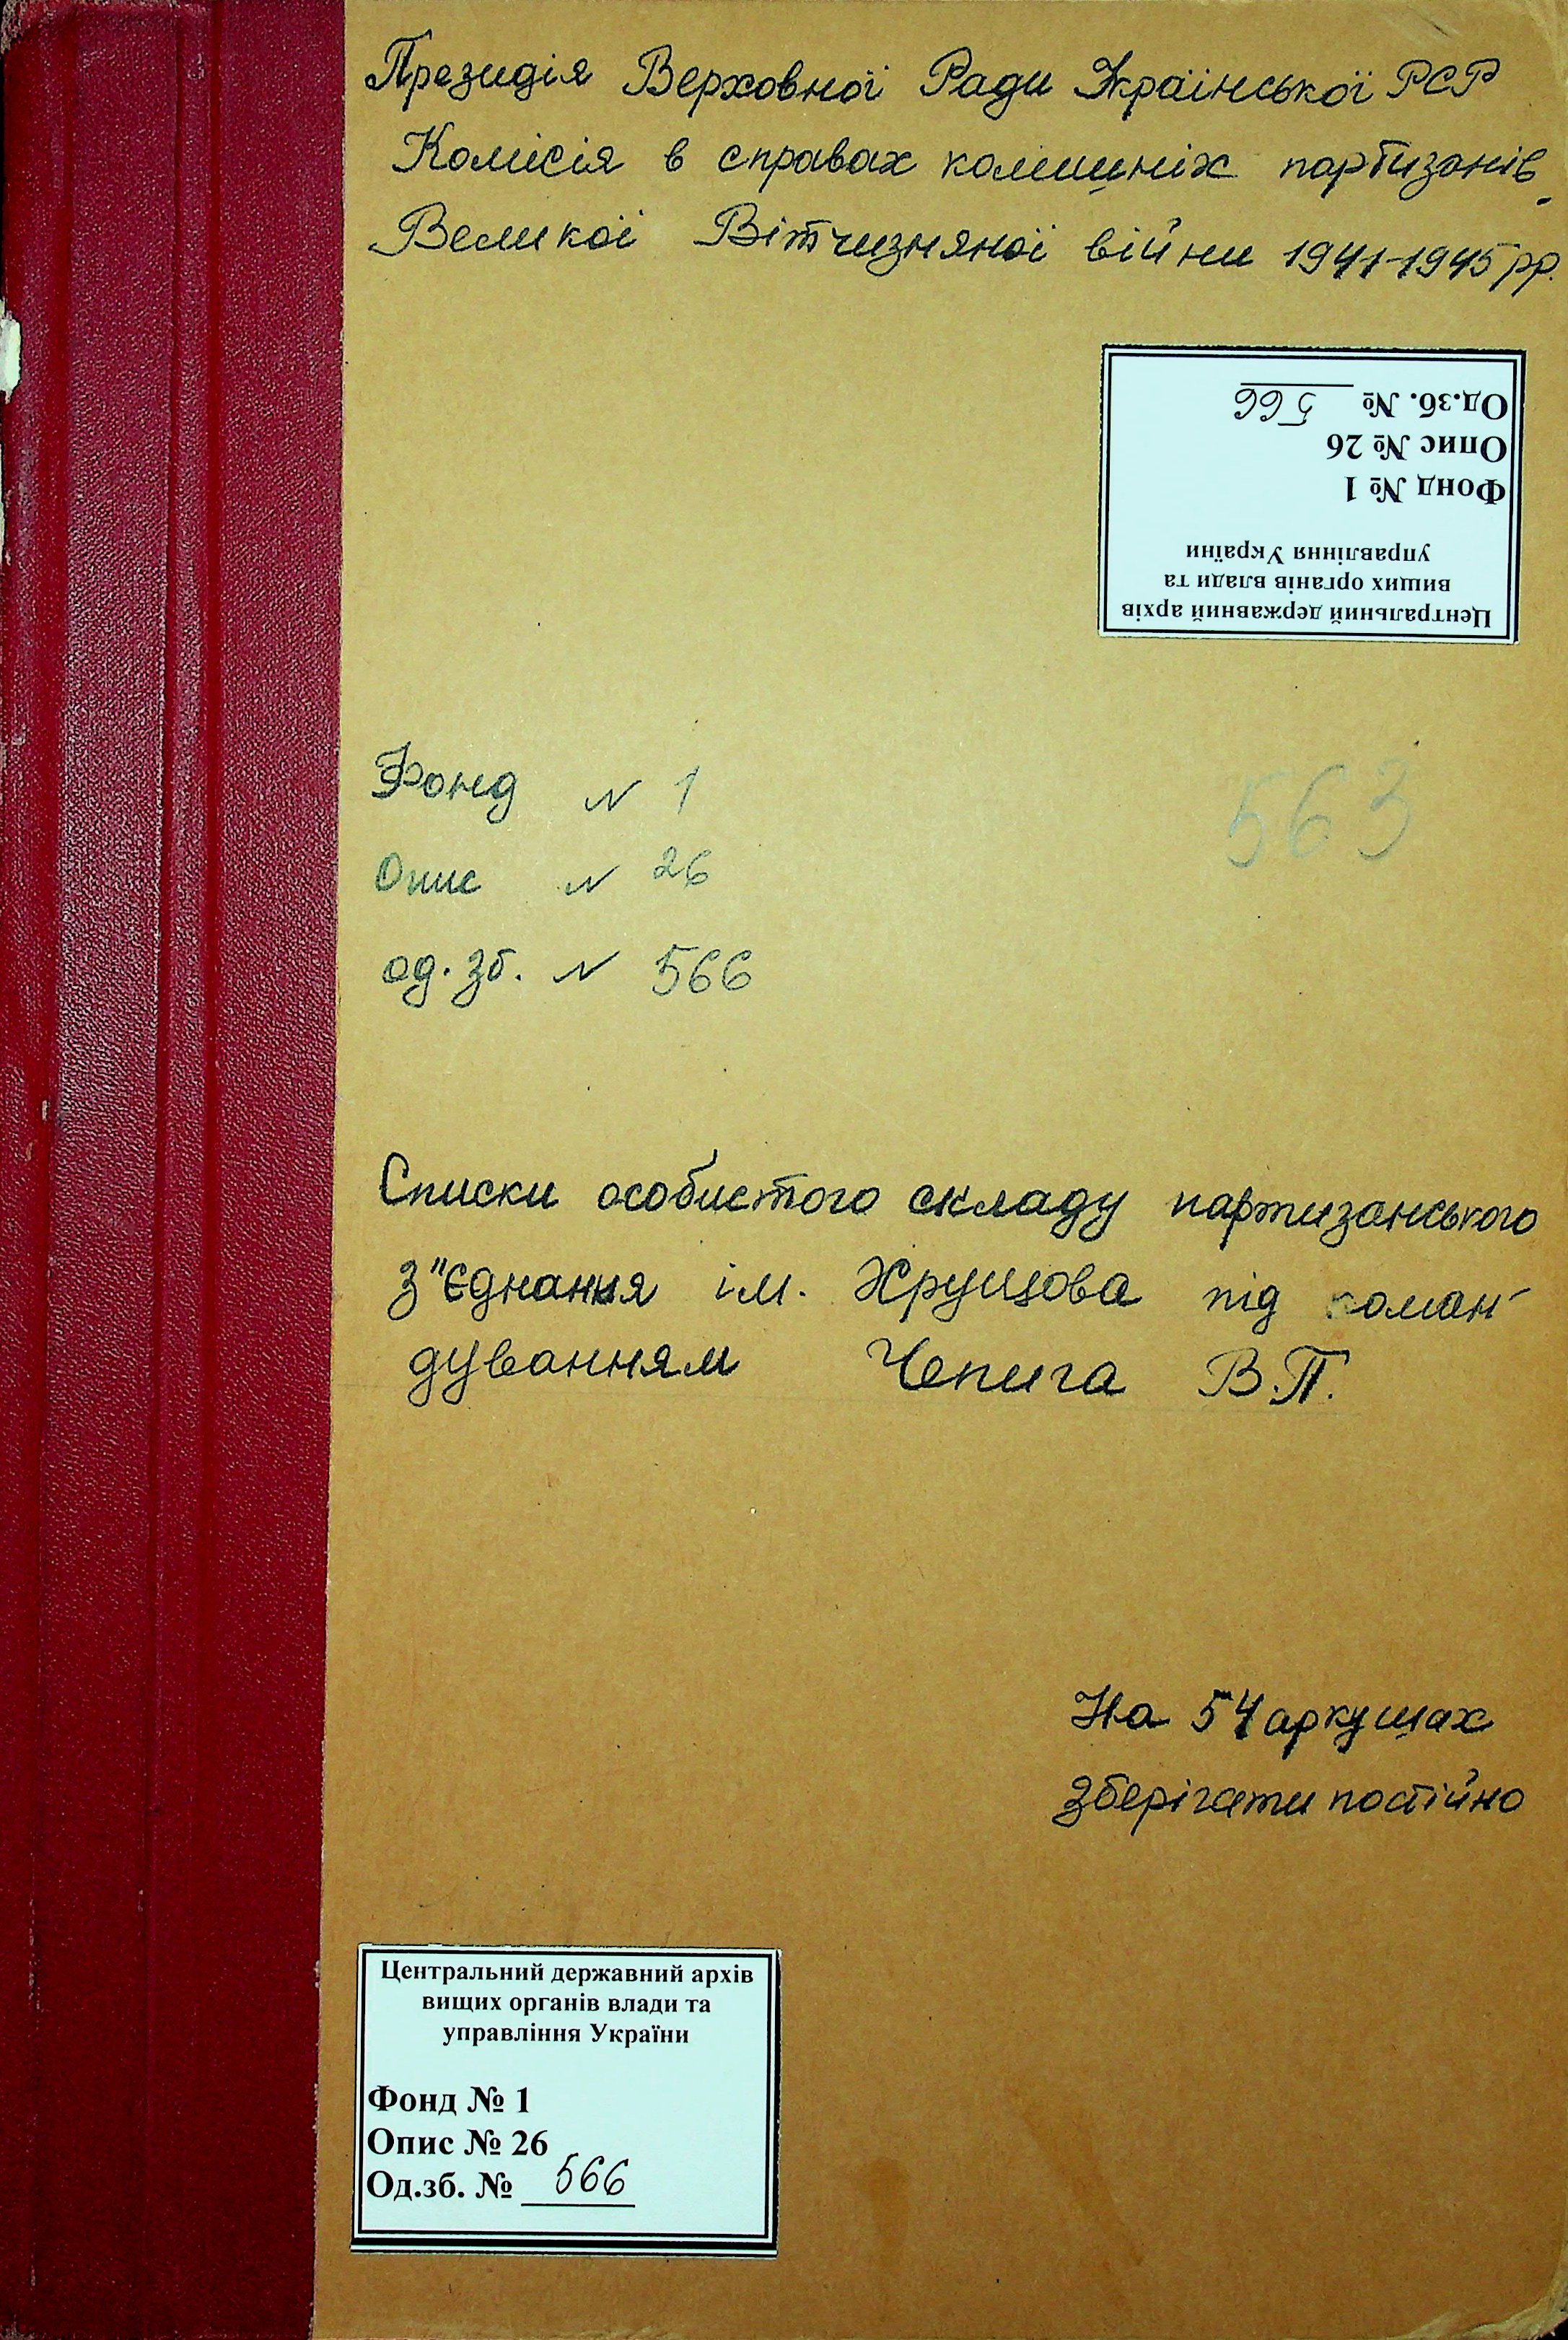 Президія Верховної Ради Української РСР
Комісія в справах колишніх партизанів
Великої Вітчизняної війни 1941-1945 рр.
Центральний державний архів
вищих органів влади та
управління України
Фонд № 1
Опис № 26
Од.зб. № 566
Фонд № 1
563
Опис № 26
од. зб. № 566
Списки особистого складу партизанського
з"єднання ім. Хрущова під коман-
дуванням Чепига В.П.
На 54 аркушах
Зберігати постійно
Центральний державний архів
вищих органів влади та
управління України
Фонд № 1
Опис № 26
Од.зб. № 566